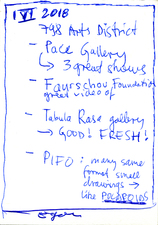 1 VI 2018
798 Arts District
- Pace Gallery
↳ 3 great shows
- Faurschou Foundation
great video of
- Tabula Rasa gallery
→ GOOD! FRESH!
- PIFO: many same
format small
drawings →
like